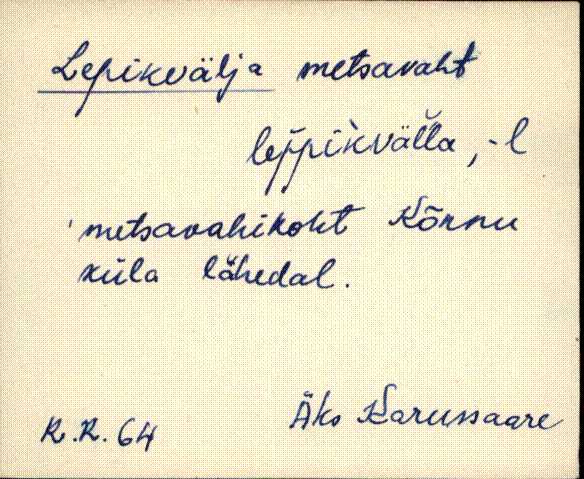 Lepikvälja metsavaht
lep̆pik̀väĺl̆a, -l
metsavahikoht Kõrnu
küla lähedal.
R.R. 64 Äks Karussaare